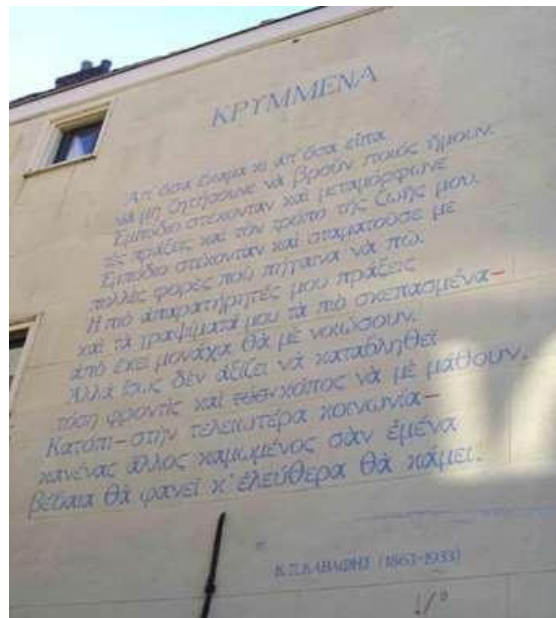 ΚΡΥΜΜΕΝΑ
Ἀπ' ὅσα ἔκαμα κι ἀπ' ὅσα εἶπα
νὰ μὴ ζητήσουνε νὰ βροῦν ποιὸς ἤμουν.
Ἐμπόδιο στέκονταν καὶ μεταμόρφωνε
τὲς πράξεις καὶ τὸν τρόπο τῆς ζωῆς μου.
Ἐμπόδιο στέκονταν καὶ σταματοῦσε με
πολλὲς φορὲς ποὺ πήγαινα νὰ πῶ.
Η πιὸ ἀπαρατήρητές μου πράξεις
καὶ τὰ γραψίματά μου τὰ πιὸ σκεπασμένα—
ἀπὸ ἐκεῖ μονάχα θὰ μὲ νοιώσουν.
Ἀλλὰ ἴσως δὲν ἀξίζει νὰ καταβληθεῖ
τόση φροντὶς καὶ κόπος νὰ μὲ μάθουν.
Κατόπι— στὴν τελειωτέρα κοινωνία—
κανένας ἄλλος καμωμένος σὰν ἐμένα
βέβαια θὰ φανεῖ κ' ἐλεύθερα θὰ κάμει.
Κ.Π.ΚΑΒΑΦΗΣ (1863-1933)